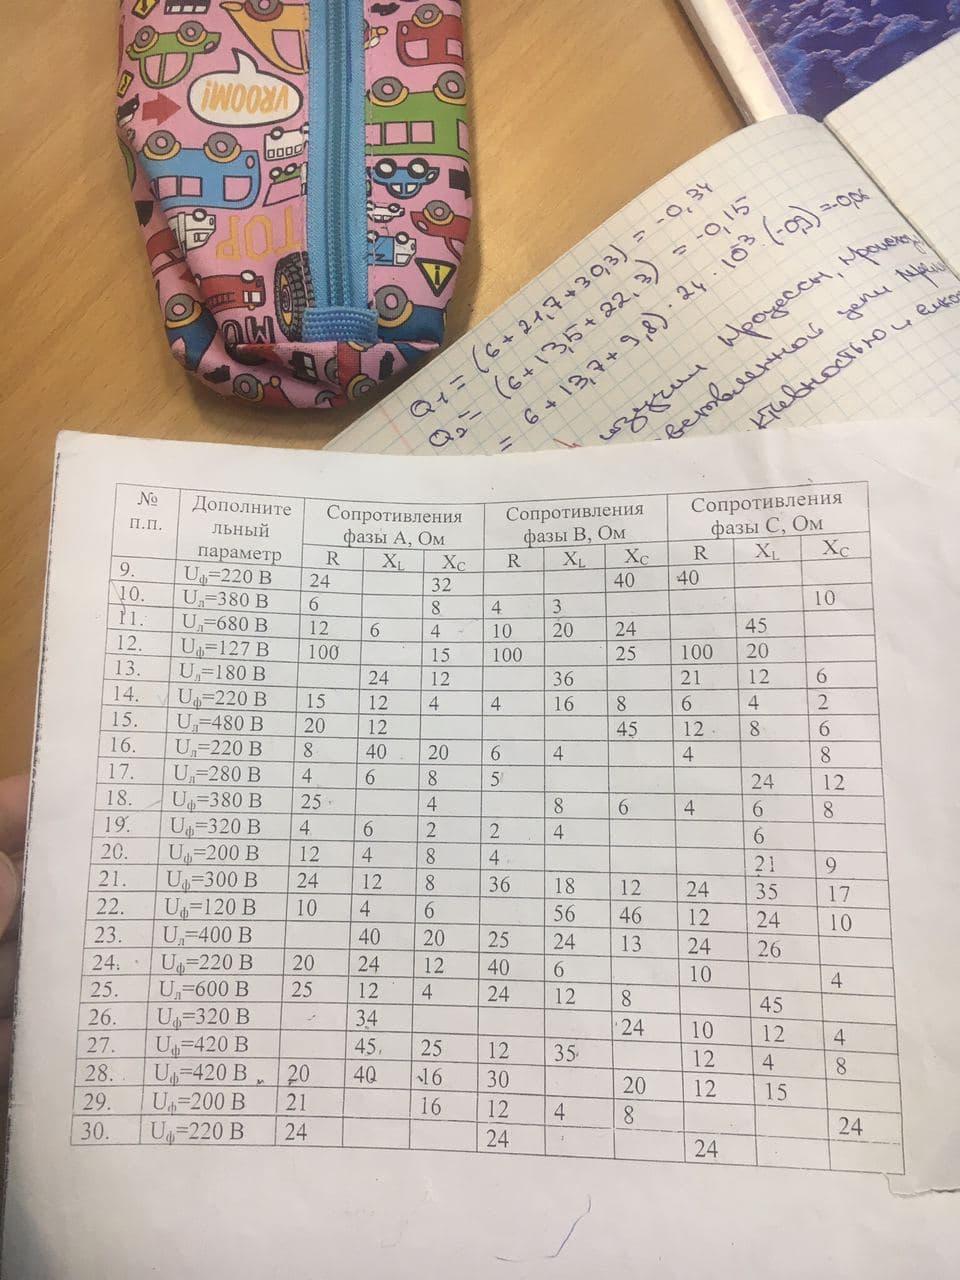 VROOM!
TOP
Q₁ = (6+21,7+30,3) = -0,34
Q₂ = (6+13,5+22,3) = -0,15
= 6+13,7+9,8) · 24 · 10⁻³ · (-0,9)
№ п.п. Дополните льный параметр Сопротивления фазы A, Ом Сопротивления фазы B, Ом Сопротивления фазы C, Ом
R X_L X_C R X_L X_C R X_L X_C
9. U_ф=220 В 24 32 40 40
10. U_л=380 В 6 8 4 3 10
11. U_л=680 В 12 6 4 10 20 24 45
12. U_ф=127 В 100 15 100 25 100 20
13. U_л=180 В 24 12 36 21 12 6
14. U_ф=220 В 15 12 4 4 16 8 6 4 2
15. U_л=480 В 20 12 45 12 8 6
16. U_л=220 В 8 40 20 6 4 4 8
17. U_л=280 В 4 6 8 5 24 12
18. U_ф=380 В 25 4 8 6 4 6 8
19. U_ф=320 В 4 6 2 2 4 6
20. U_ф=200 В 12 4 8 4 21 9
21. U_ф=300 В 24 12 8 36 18 12 24 35 17
22. U_ф=120 В 10 4 6 56 46 12 24 10
23. U_л=400 В 40 20 25 24 13 24 26
24. U_ф=220 В 20 24 12 40 6 10 4
25. U_л=600 В 25 12 4 24 12 8 45
26. U_ф=320 В 34 24 10 12 4
27. U_ф=420 В 45 25 12 35 12 4 8
28. U_ф=420 В 20 40 16 30 20 12 15
29. U_ф=200 В 21 16 12 4 8 24
30. U_ф=220 В 24 24 24